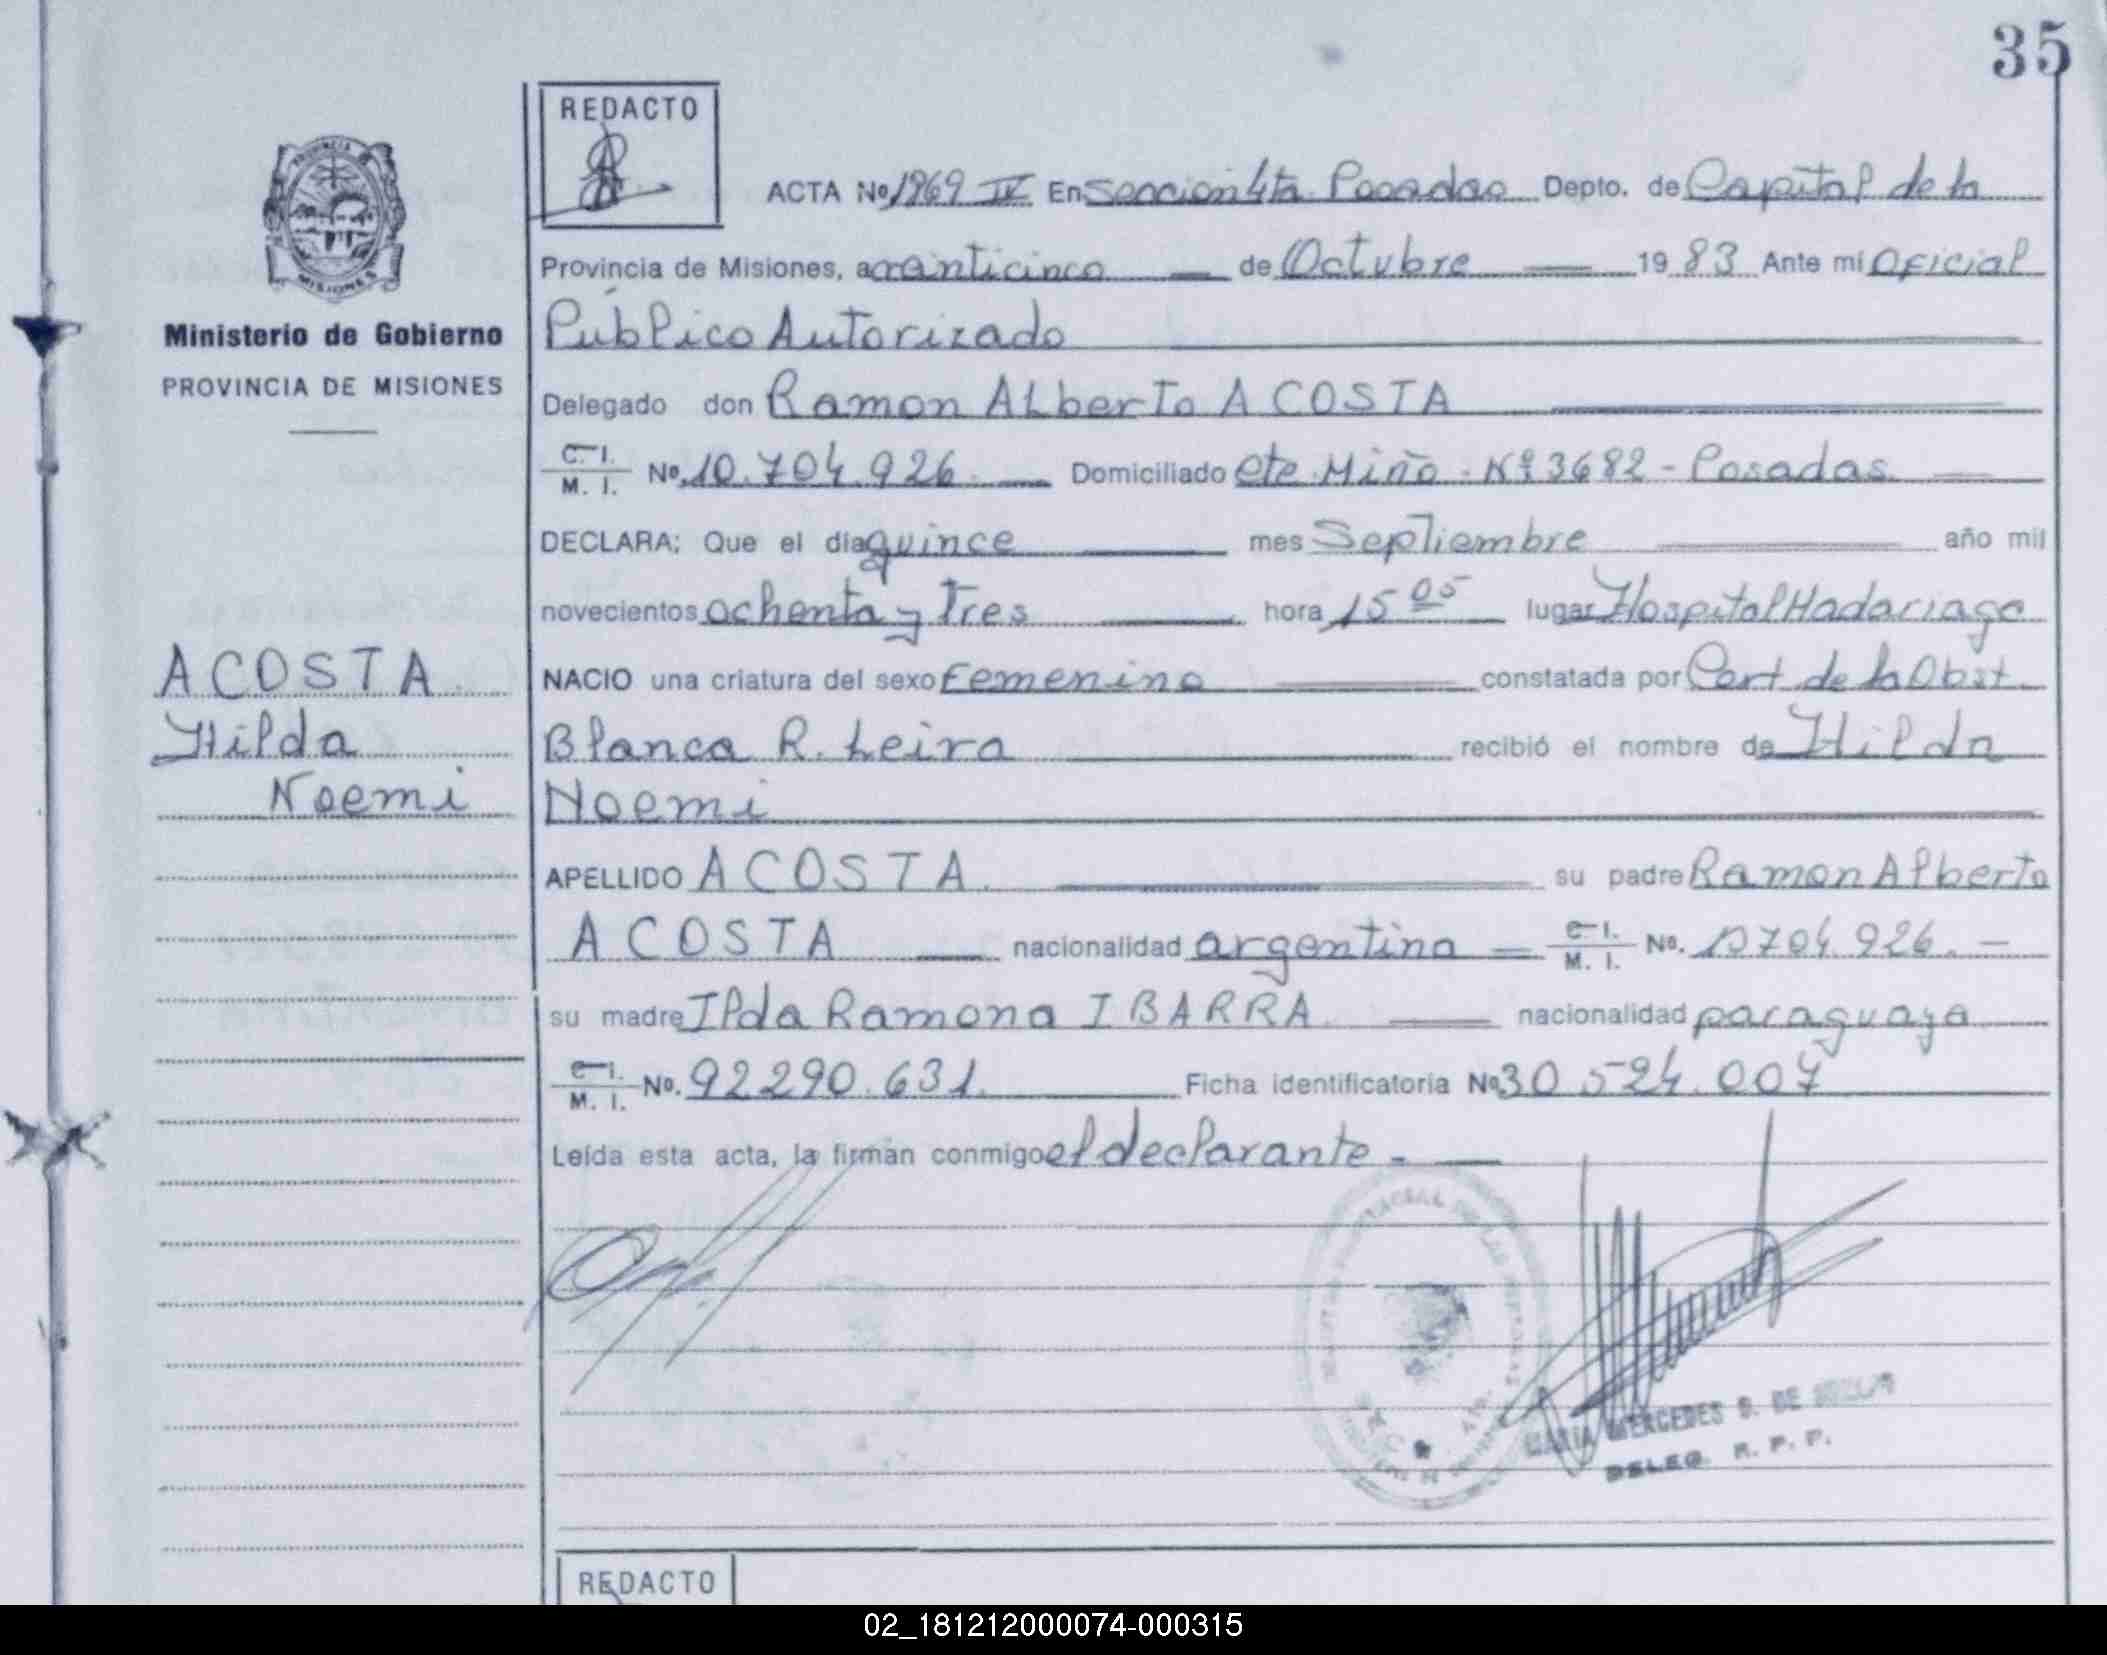 35
REDACTO
PROVINCIA DE
MISIONES
Ministerio de Gobierno
PROVINCIA DE MISIONES
ACOSTA
Hilda
Noemi
ACTA Nº 1969 IV En Seccion 4ta Posadas Depto. de Capital de la
Provincia de Misiones, a veinticinco de Octubre 1983 Ante mí Oficial
Público Autorizado
Delegado don Ramon Alberto ACOSTA
C. I.
M. I. Nº 10.704.926. Domiciliado Cte. Miño. Nº 3682 - Posadas.
DECLARA: Que el día quince mes Septiembre año mil
novecientos ochenta y tres hora 15 05 lugar Hospital Madariaga
NACIO una criatura del sexo Femenino constatada por Cert de la Obst
Blanca R. Leiva recibió el nombre de Hilda
Noemi
APELLIDO ACOSTA su padre Ramon Alberto
ACOSTA nacionalidad argentina C. I. M. I. No. 10704.926.
su madre Ilda Ramona IBARRA nacionalidad paraguaya
C. I.
M. I. No. 92290.631. Ficha identificatoria Nº 30 524.007
Leída esta acta, la firman conmigo el declarante -
MARIA MERCEDES DE
DELEG. R. P. P.
REDACTO
02_181212000074-000315